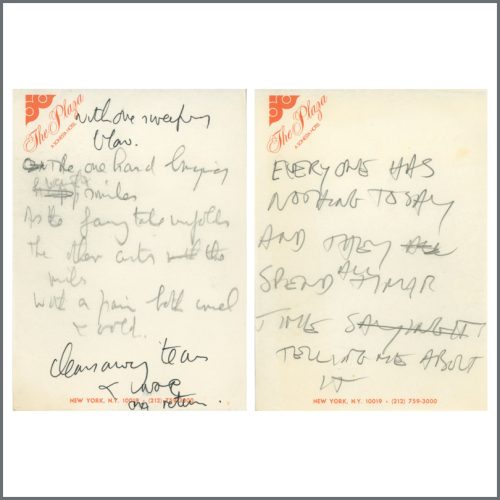 The Plaza
A SONESTA HOTEL
with one sweeping
blow.
The one hand bringing
smiles
As the fairy tale unfolds
The other cuts with the
With a pain both cruel
& cold.
cleans away tears
&
and return.
NEW YORK, N.Y. 10019 • (212) 759-3000
The Plaza
A SONESTA HOTEL
EVERYONE HAS
NOTHING TO SAY
AND THEY
SPEND ALL THEIR
TIME SAYING IT
TELLING ME ABOUT
IT
NEW YORK, N.Y. 10019 • (212) 759-3000